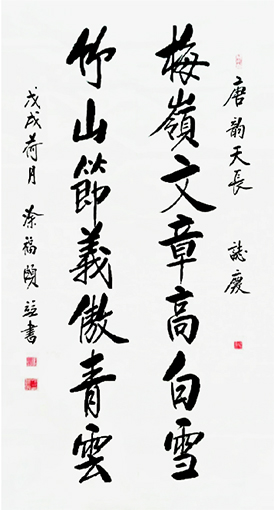 唐韵天長 誌慶
梅嶺文章高白雪
竹山節義傲青雲
戊戌荷月 涂福頤並書